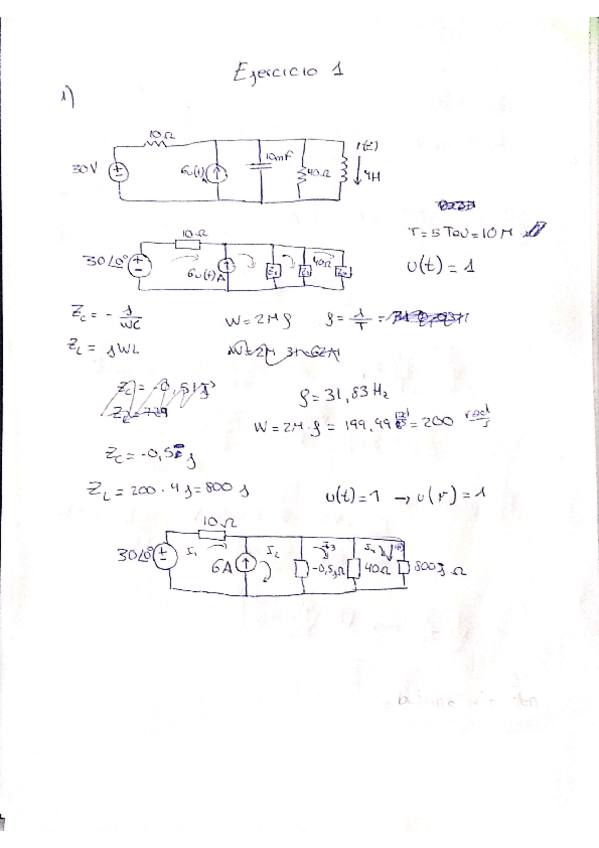 Ejercicio 1
1)
10Ω
30V
6u(t)
10mF
40Ω
i(t)
4H
10Ω
30∠0°
6u(t)A
Z₁
40Ω
T = 5 Tau = 10 M
u(t) = 1
Z_C = - j/WC
W = 2π f
f = 1/T =
Z_L = jWL
f = 31,83 Hz
W = 2π · f = 199,99 = 200 rad/s
Z_C = -0,5 j
Z_L = 200 · 4 j = 800 j
u(t) = 1 → u(r) = 1
10Ω
30∠0°
I₁
6A
I₂
I₃
-0,5jΩ
I₄
40Ω
800j Ω